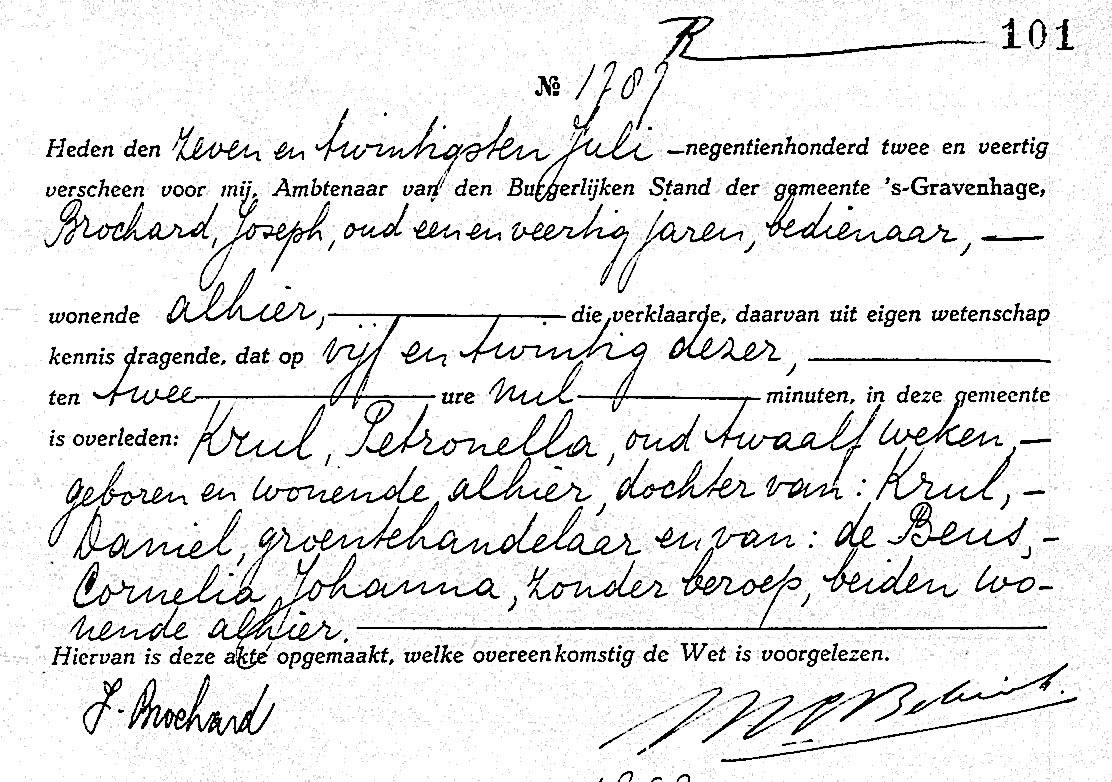 R 101
№ 1787
Heden den zeven en twintigsten Juli — negentienhonderd twee en veertig
verscheen voor mij, Ambtenaar van den Burgerlijken Stand der gemeente 's-Gravenhage,
Brochard, Joseph, oud een en veertig jaren, bedienaar, —
wonende alhier, — die verklaarde, daarvan uit eigen wetenschap
kennis dragende, dat op vijf en twintig dezer, —
ten twee — ure nul — minuten, in deze gemeente
is overleden: Krul, Petronella, oud twaalf weken, —
geboren en wonende alhier, dochter van: Krul, —
Daniel, groentehandelaar en van: de Beus, —
Cornelia Johanna, zonder beroep, beiden wo-
nende alhier. —
Hiervan is deze akte opgemaakt, welke overeenkomstig de Wet is voorgelezen.
J. Brochard